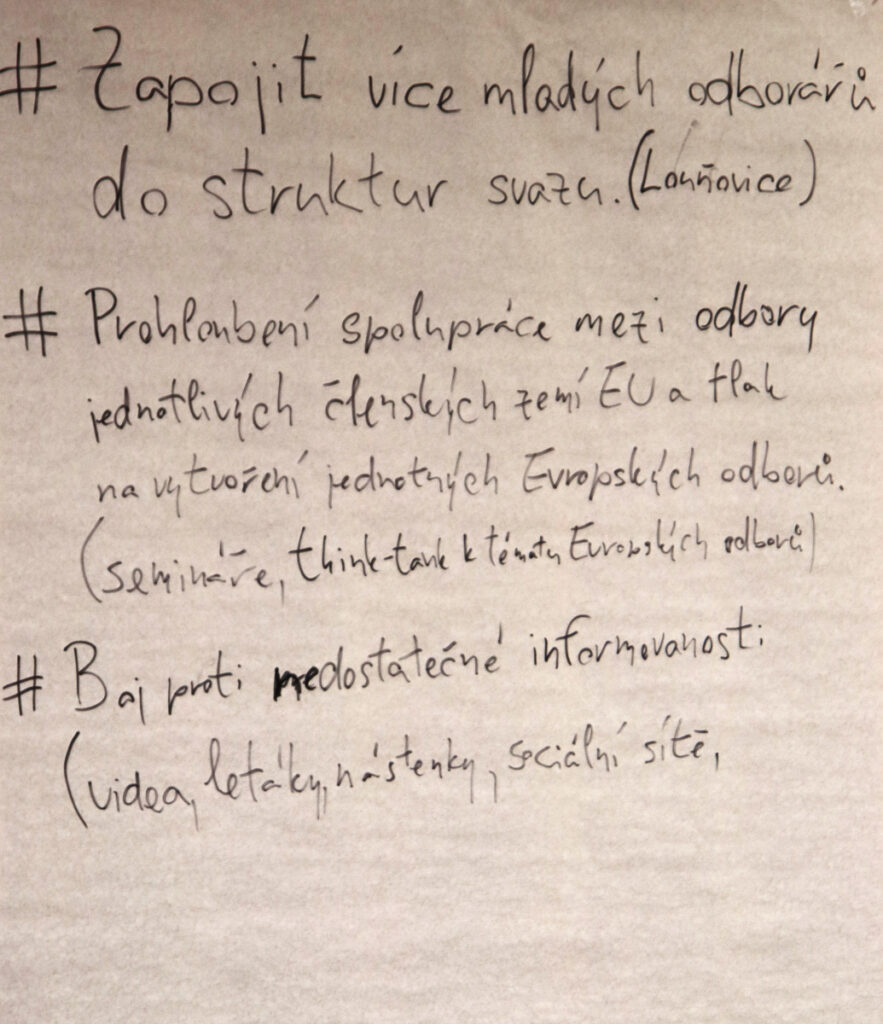 # Zapojit více mladých odborářů
do struktur svazu. (Louňovice)
# Prohloubení spolupráce mezi odbory
jednotlivých členských zemí EU a tlak
na vytvoření jednotných Evropských odborů.
(semináře, think-tank k tématu Evropských odborů)
# Boj proti nedostatečné informovanosti.
(videa, letáky, nástenky, sociální sítě,